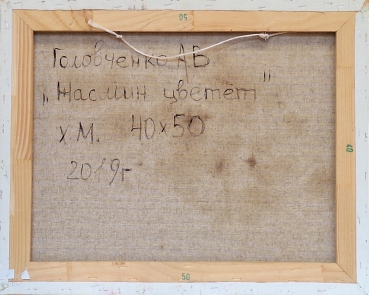 50
Головченко АВ
„Жасмин цветёт"
Х.М. 40х50
40
2019г
50